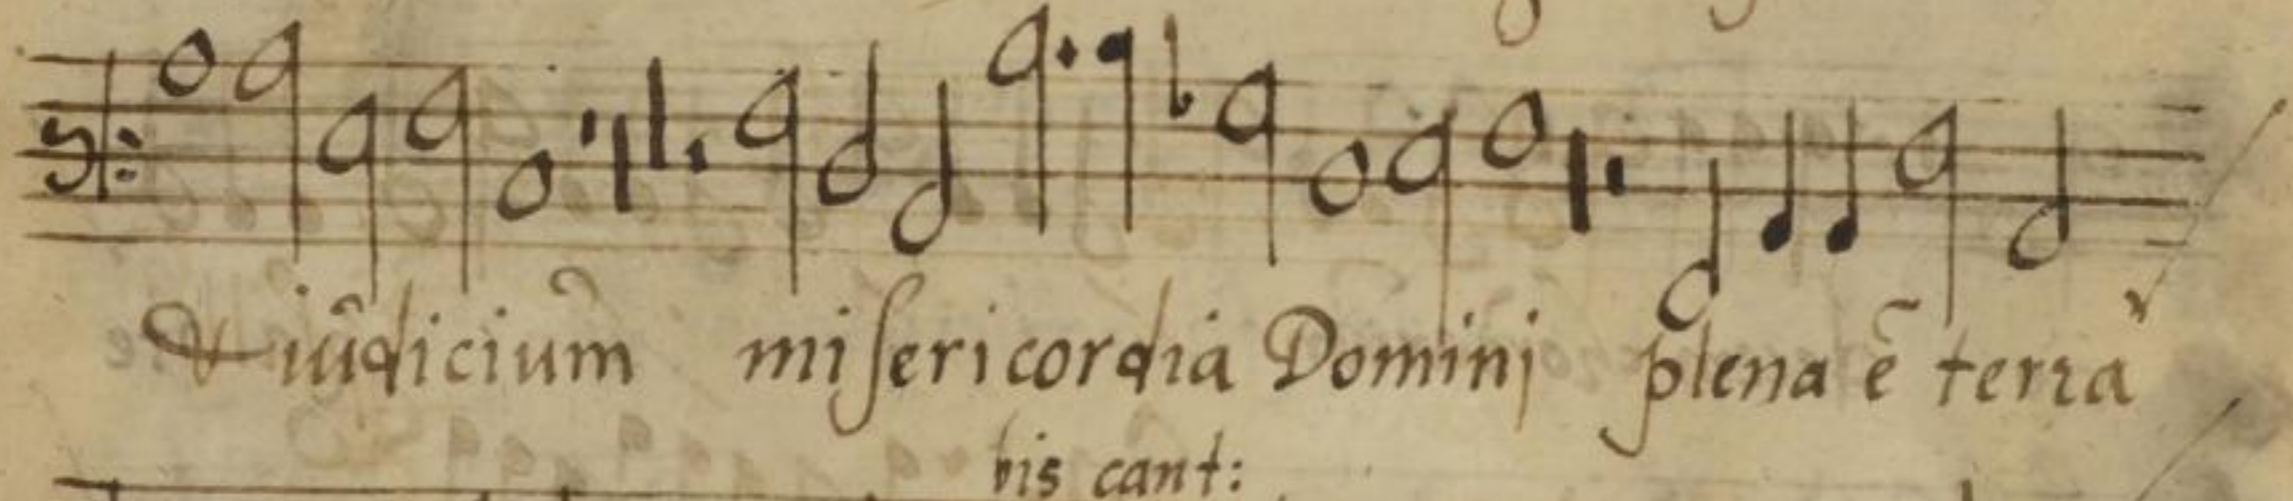 & iūdicium misericordia Domini plena ē terra
bis cant: